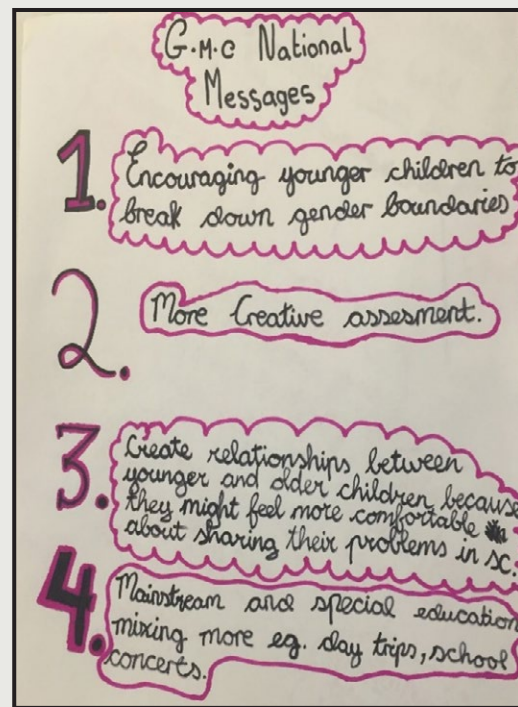 G.M.C National
Messages
1. Encouraging younger children to
break down gender boundaries
2. More Creative assesment.
3. Create relationships between
younger and older children, because
they might feel more comfortable
about sharing their problems in sc.
4. Mainstream and special education
mixing more eg. day trips, school
concerts.